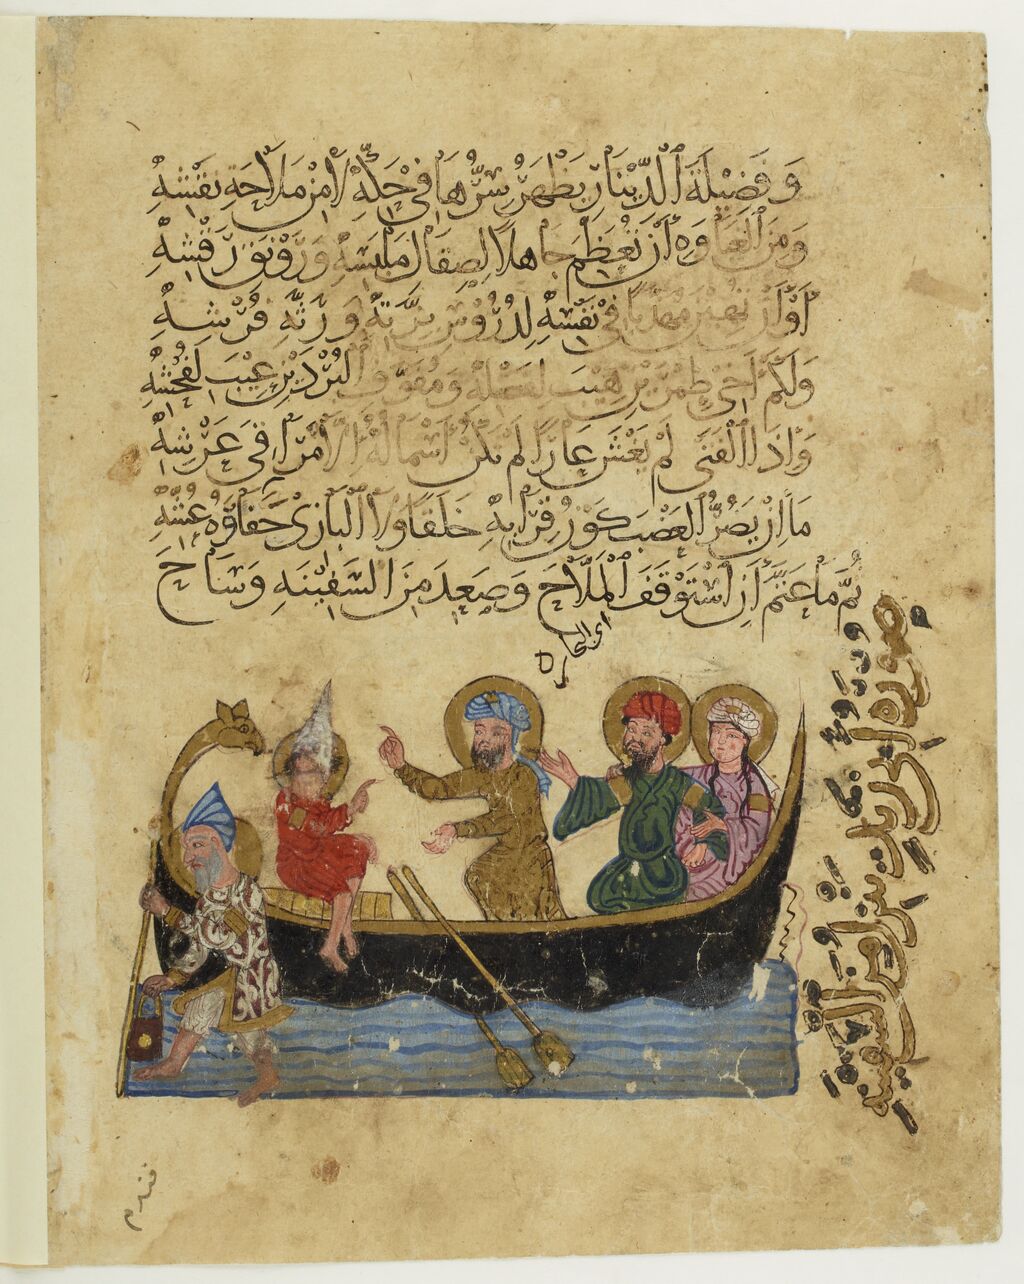 وَفَضِيلَةُ الدِّينَارِ يَظْهَرُ سِرُّهَا فِي حَكِّهِ لَا مِنْ مَلَاحَةِ نَقْشِهِ
وَمِنَ الغَبَاوَه أَنْ تُعَظِّمَ جَاهِلًا لِصِقَالِ مَلْبَسِهِ وَرَوْنَقِ رَقْشِهِ
أَوْ أَنْ تُهِينَ مُهَذَّبًا فِي نَفْسِهِ لِدُرُوسِ بِزَّتِهِ وَرَثَّةِ فُرْشِهِ
وَلَكَمْ أَخِي طِمْرَيْنِ هِيبَ لِفَضْلِهِ وَمُفَوَّفِ الْبُرْدَيْنِ عِيبَ لِفُحْشِهِ
وَإِذَا الْفَتَى لَمْ يَغْشَ عَارًا لَمْ تَكُنْ أَسْمَالُهُ إِلَّا مَرَاقِيَ عَرْشِهِ
مَا إِنْ يَضُرُّ الْعَضْبَ كَوْنُ قِرَابِهِ خَلَقًا وَلَا الْبَازِيَّ حَقَارَةُ عُشِّهِ
ثُمَّ مَا عَتَّمَ أَنِ اسْتَوْقَفَ الْمَلَّاحَ وَصَعِدَ مِنَ السَّفِينَهِ وَسَاحَ
صوره ابي زيد ينزل من السفينه